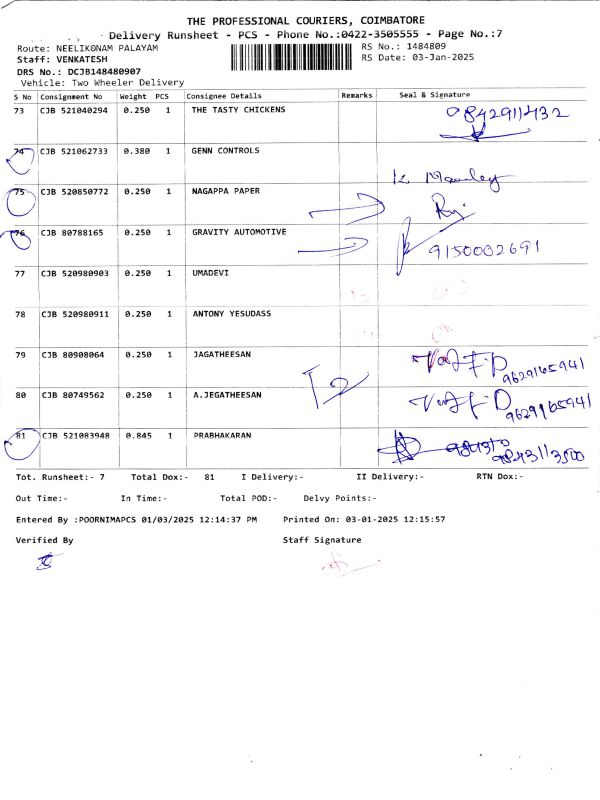 THE PROFESSIONAL COURIERS, COIMBATORE
Delivery Runsheet - PCS - Phone No.:0422-3505555 - Page No.:7
Route: NEELIKONAM PALAYAM
RS No.: 1484809
Staff: VENKATESH
RS Date: 03-Jan-2025
DRS No.: DCJB148480907
Vehicle: Two Wheeler Delivery
S No Consignment No Weight PCS Consignee Details Remarks Seal & Signature
73 CJB 521040294 0.250 1 THE TASTY CHICKENS 9842911432
74 CJB 521062733 0.380 1 GENN CONTROLS
75 CJB 520850772 0.250 1 NAGAPPA PAPER
76 CJB 80788165 0.250 1 GRAVITY AUTOMOTIVE 9150002691
77 CJB 520980903 0.250 1 UMADEVI
78 CJB 520980911 0.250 1 ANTONY YESUDASS
79 CJB 80908064 0.250 1 JAGATHEESAN 9629165941
80 CJB 80749562 0.250 1 A.JEGATHEESAN 9629165941
81 CJB 521083948 0.845 1 PRABHAKARAN 9843113500
Tot. Runsheet:- 7 Total Dox:- 81 I Delivery:- II Delivery:- RTN Dox:-
Out Time:- In Time:- Total POD:- Delvy Points:-
Entered By :POORNIMAPCS 01/03/2025 12:14:37 PM Printed On: 03-01-2025 12:15:57
Verified By Staff Signature